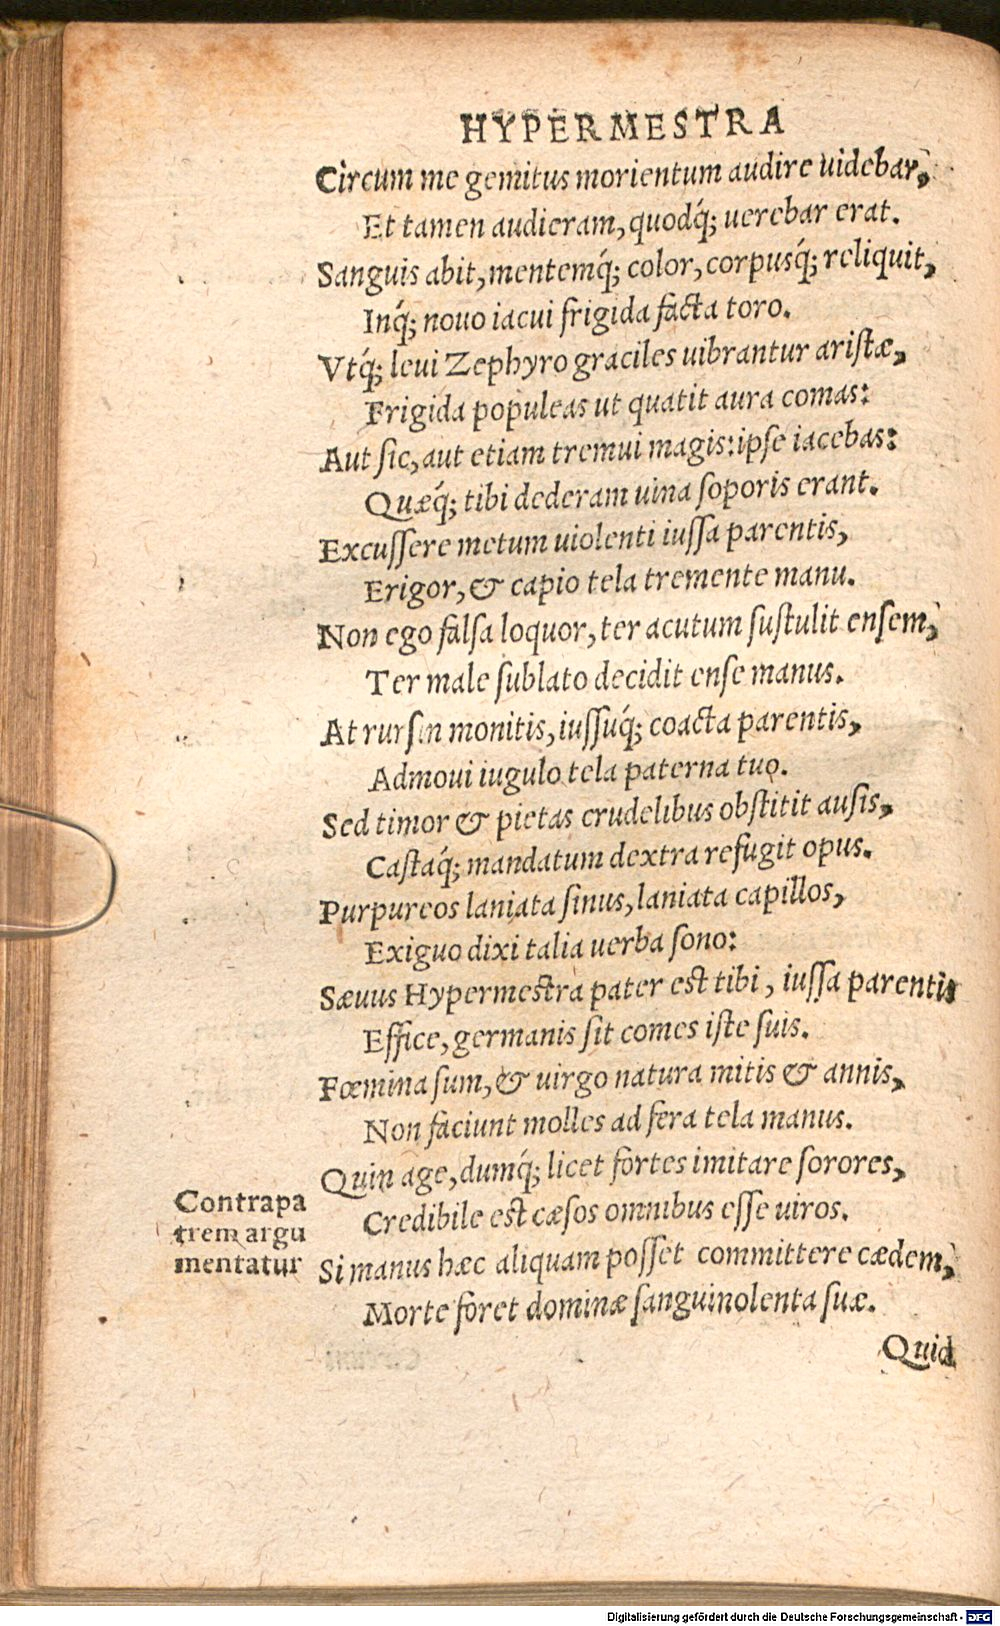 HYPERMESTRA
Circum me gemitus morientum audire uidebar,
Et tamen audieram, quodq́; uerebar erat.
Sanguis abit, mentemq́; color, corpusq́; reliquit,
Inq́; nouo iacui frigida facta toro.
Vtq́; leui Zephyro graciles uibrantur aristæ,
Frigida populeas ut quatit aura comas:
Aut sic, aut etiam tremui magis: ipse iacebas:
Quæq́; tibi dederam uina soporis erant.
Excussere metum uiolenti iussa parentis,
Erigor, & capio tela tremente manu.
Non ego falsa loquor, ter acutum sustulit ensem,
Ter male sublato decidit ense manus.
At rursin monitis, iussuq́; coacta parentis,
Admoui iugulo tela paterna tuo.
Sed timor & pietas crudelibus obstitit ausis,
Castaq́; mandatum dextra refugit opus.
Purpureos laniata sinus, laniata capillos,
Exiguo dixi talia uerba sono:
Sæuus Hypermestra pater est tibi, iussa parentis
Effice, germanis sit comes iste suis.
Fœmina sum, & uirgo natura mitis & annis,
Non faciunt molles ad fera tela manus.
Quin age, dumq́; licet fortes imitare sorores,
Credibile est cæsos omnibus esse uiros.
Contrapa
trem argu
mentatur
Si manus hæc aliquam posset committere cædem,
Morte foret dominæ sanguinolenta suæ.
Quid
Digitalisierung gefördert durch die Deutsche Forschungsgemeinschaft - DFG